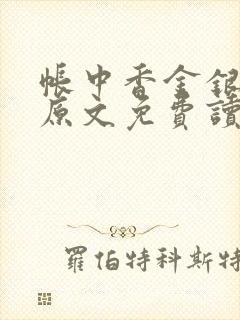 帳中香金銀
原文免費讀
羅伯特科斯特